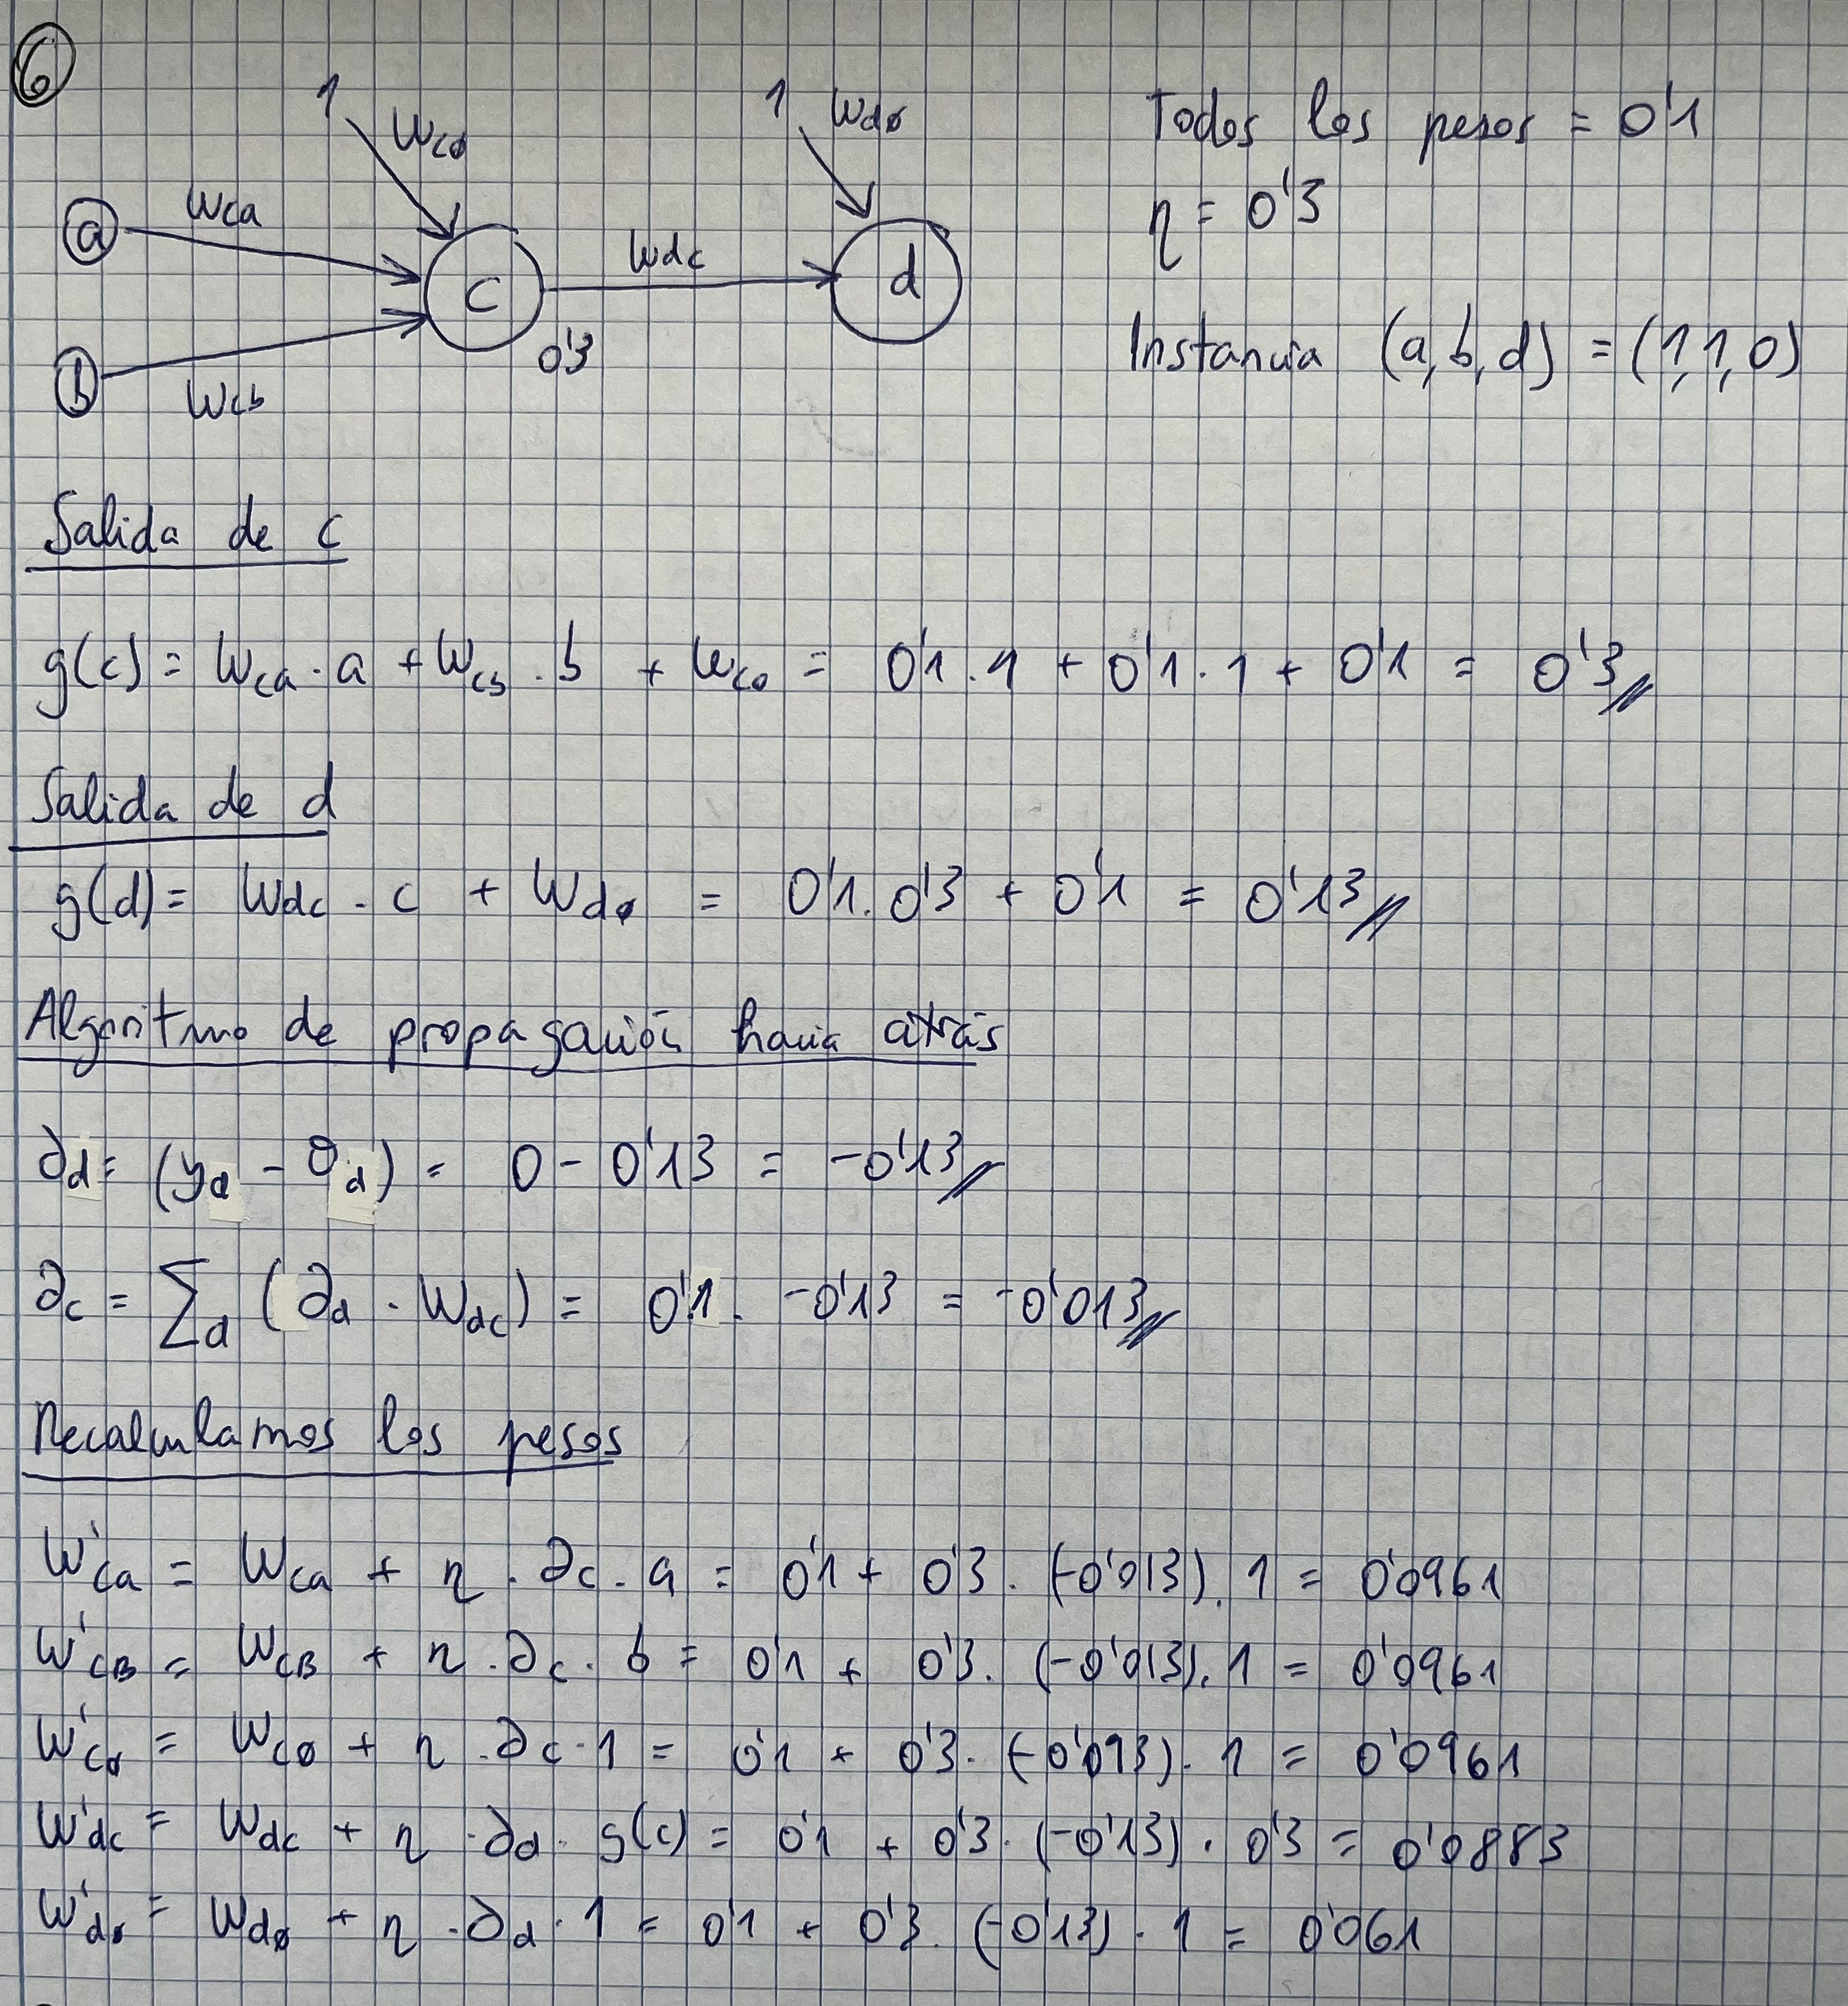 6
1 Wcø 1 Wdø Todos los pesos = 0'1
a Wca c Wdc d η = 0'3
b Wcb 0'3 Instancia (a,b,d) = (1,1,0)
Salida de c
g(c) = Wca · a + Wcb · b + Wc0 = 0'1 · 1 + 0'1 · 1 + 0'1 = 0'3
Salida de d
g(d) = Wdc · c + Wdø = 0'1 · 0'3 + 0'1 = 0'13
Algoritmo de propagación hacia atrás
∂d = (yd - Od) = 0 - 0'13 = -0'13
∂c = ∑d (∂d · Wdc) = 0'1 · -0'13 = -0'013
Recalculamos los pesos
W'ca = Wca + η · ∂c · a = 0'1 + 0'3 · (-0'013) · 1 = 0'0961
W'cB = WcB + η · ∂c · b = 0'1 + 0'3 · (-0'013) · 1 = 0'0961
W'cø = Wcø + η · ∂c · 1 = 0'1 + 0'3 · (-0'013) · 1 = 0'0961
W'dc = Wdc + η · ∂d · g(c) = 0'1 + 0'3 · (-0'13) · 0'3 = 0'0883
W'dø = Wdø + η · ∂d · 1 = 0'1 + 0'3 · (-0'13) · 1 = 0'061